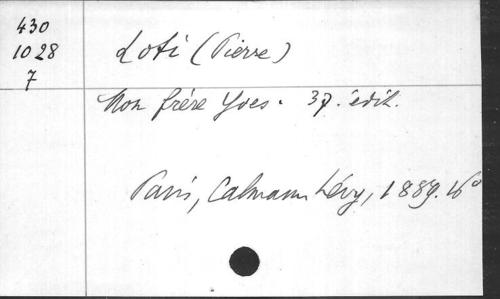 430
1028
7
Loti (Pierre)
Mon frère Yves. 37. édit.
Paris, Calmann Lévy, 1889. 16°